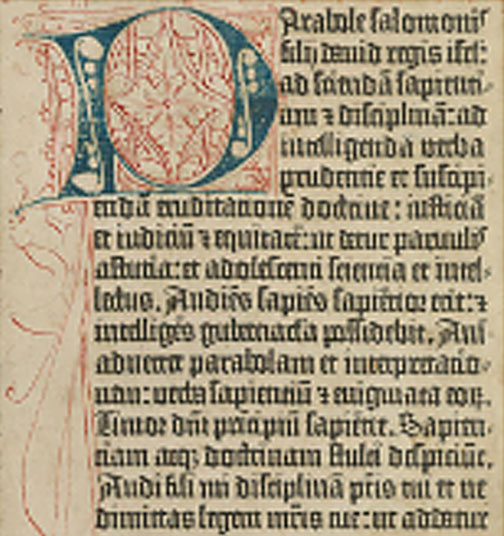 Parabole salomonis
filij dauid regis isrl:
ad sciendā sapienti-
am ⁊ disciplinā: ad
intelligenda verba
prudentie et suscipi-
endā eruditationē doctrine: iusticiā
et iudiciū ⁊ equitatē: ut detur paruulis
astutia: et adolescenti sciencia et intel-
lectus. Audiēs sapiēs sapientior erit: ⁊
intelligēs gubernacla possidebit. Ani-
aduertet parabolam et interpretatio-
nem: verba sapientiū ⁊ enigmata eoꝝ.
Timor dn̄i principiū sapiētie. Sapien-
tiam atqꝫ doctrinam stulti despiciūt.
Audi fili mi disciplinā pr̄is tui et ne
dimittas legem mr̄is tue: ut addatur